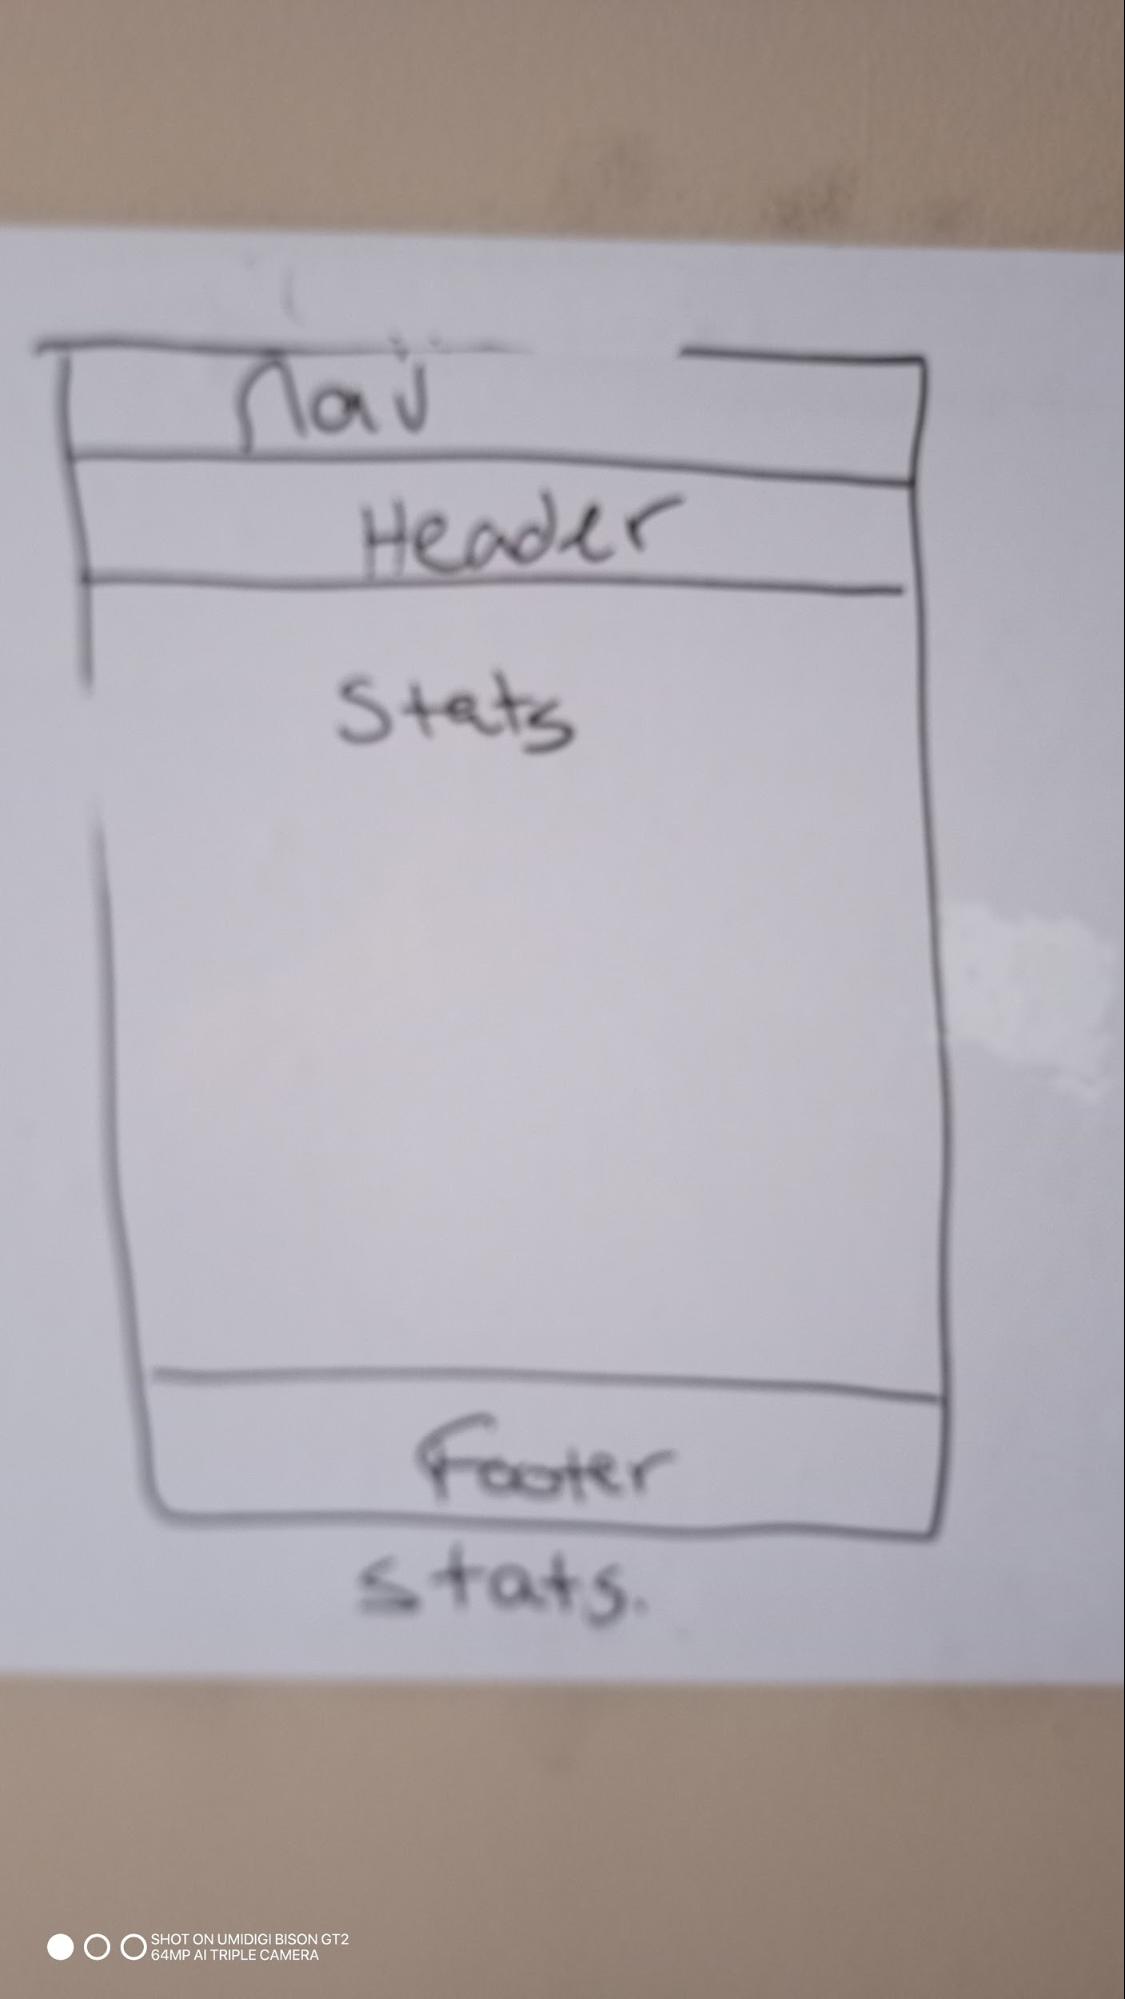 nav
Header
Stats
Footer
stats.
SHOT ON UMIDIGI BISON GT2
64MP AI TRIPLE CAMERA